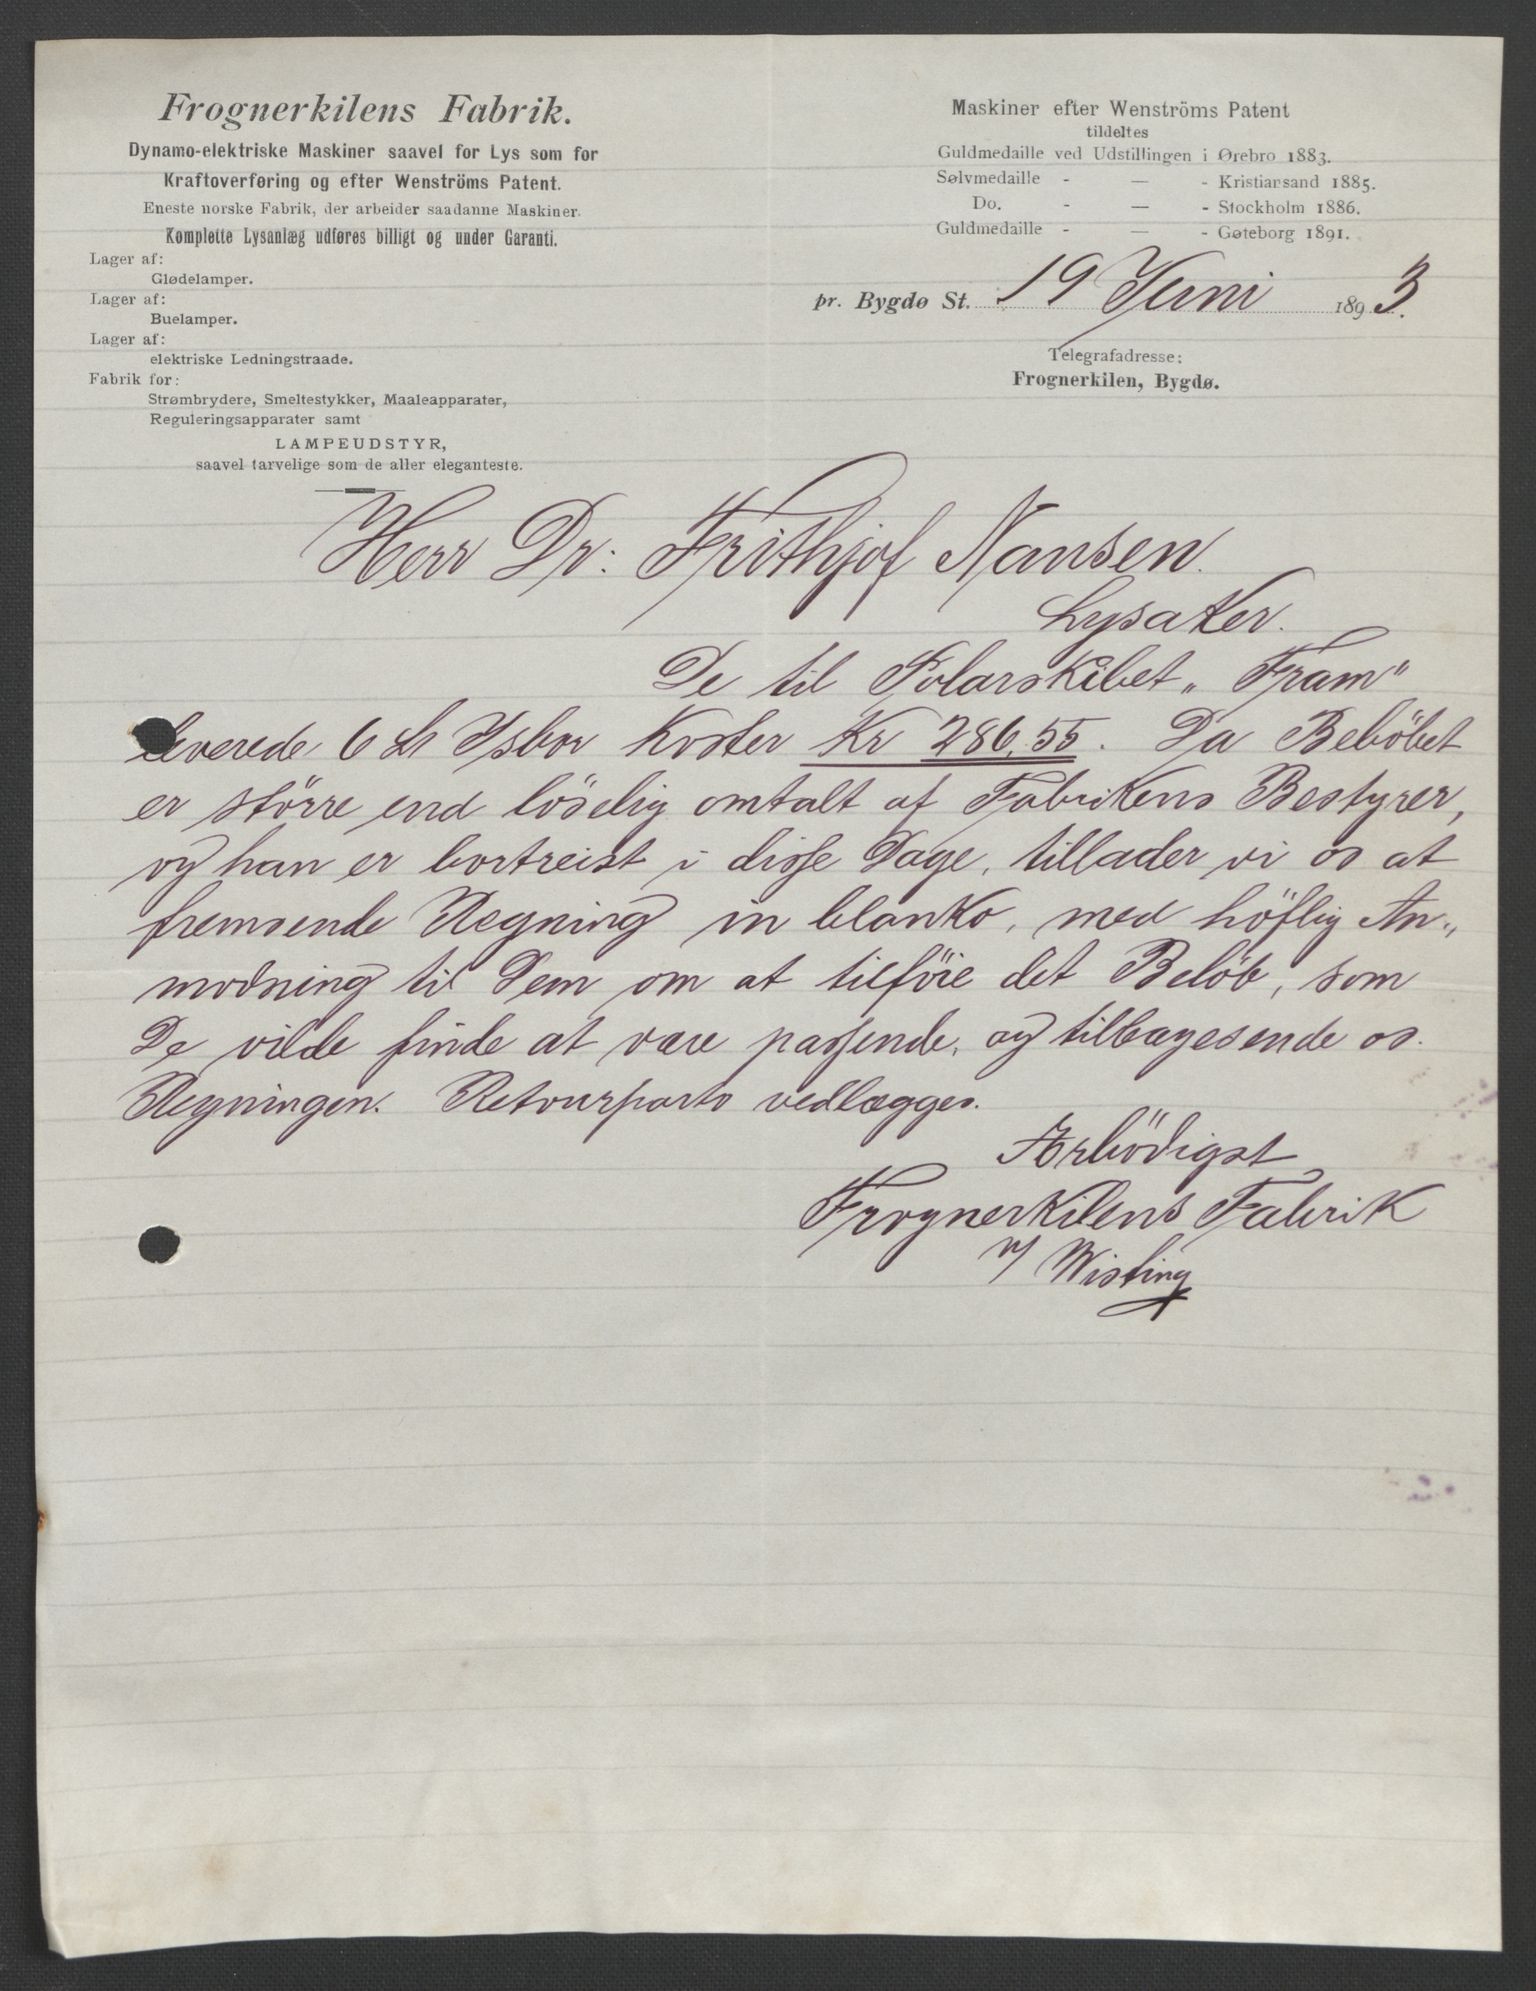 Frognerkilens Fabrik.
Dynamo-elektriske Maskiner saavel for Lys som for
Kraftoverføring og efter Wenströms Patent.
Eneste norske Fabrik, der arbeider saadanne Maskiner.
Komplette Lysanlæg udføres billigt og under Garanti.
Lager af:
Glødelamper.
Lager af:
Buelamper.
Lager af:
elektriske Ledningstraade.
Fabrik for:
Strømbrydere, Smeltestykker, Maaleapparater,
Reguleringsapparater samt
LAMPEUDSTYR,
saavel tarvelige som de aller eleganteste.
Maskiner efter Wenströms Patent
tildeltes
Guldmedaille ved Udstillingen i Ørebro 1883.
Sølvmedaille - — - Kristiansand 1885.
Do. - — - Stockholm 1886.
Guldmedaille - — - Gøteborg 1891.
pr. Bygdø St. 19 Juni 1893.
Telegrafadresse:
Frognerkilen, Bygdø.
Herr Dr: Frithjof Nansen.
Lysaker.
De til Polarskibet „Fram"
leverede 6 St Isbor koster Kr 286,55. Da Beböbet
er större end löselig omtalt af Fabrikens Bestyrer,
og han er bortreist i disse Dage, tillader vi os at
fremsende Regning in blanko, med höflig An„
modning til Dem om at tilföie det Belöb, som
De vilde finde at være passende, og tilbagesende os.
Regningen. Retourporto vedlægges.
Ærbödigst
Frognerkilens Fabrik
v/ Wisting